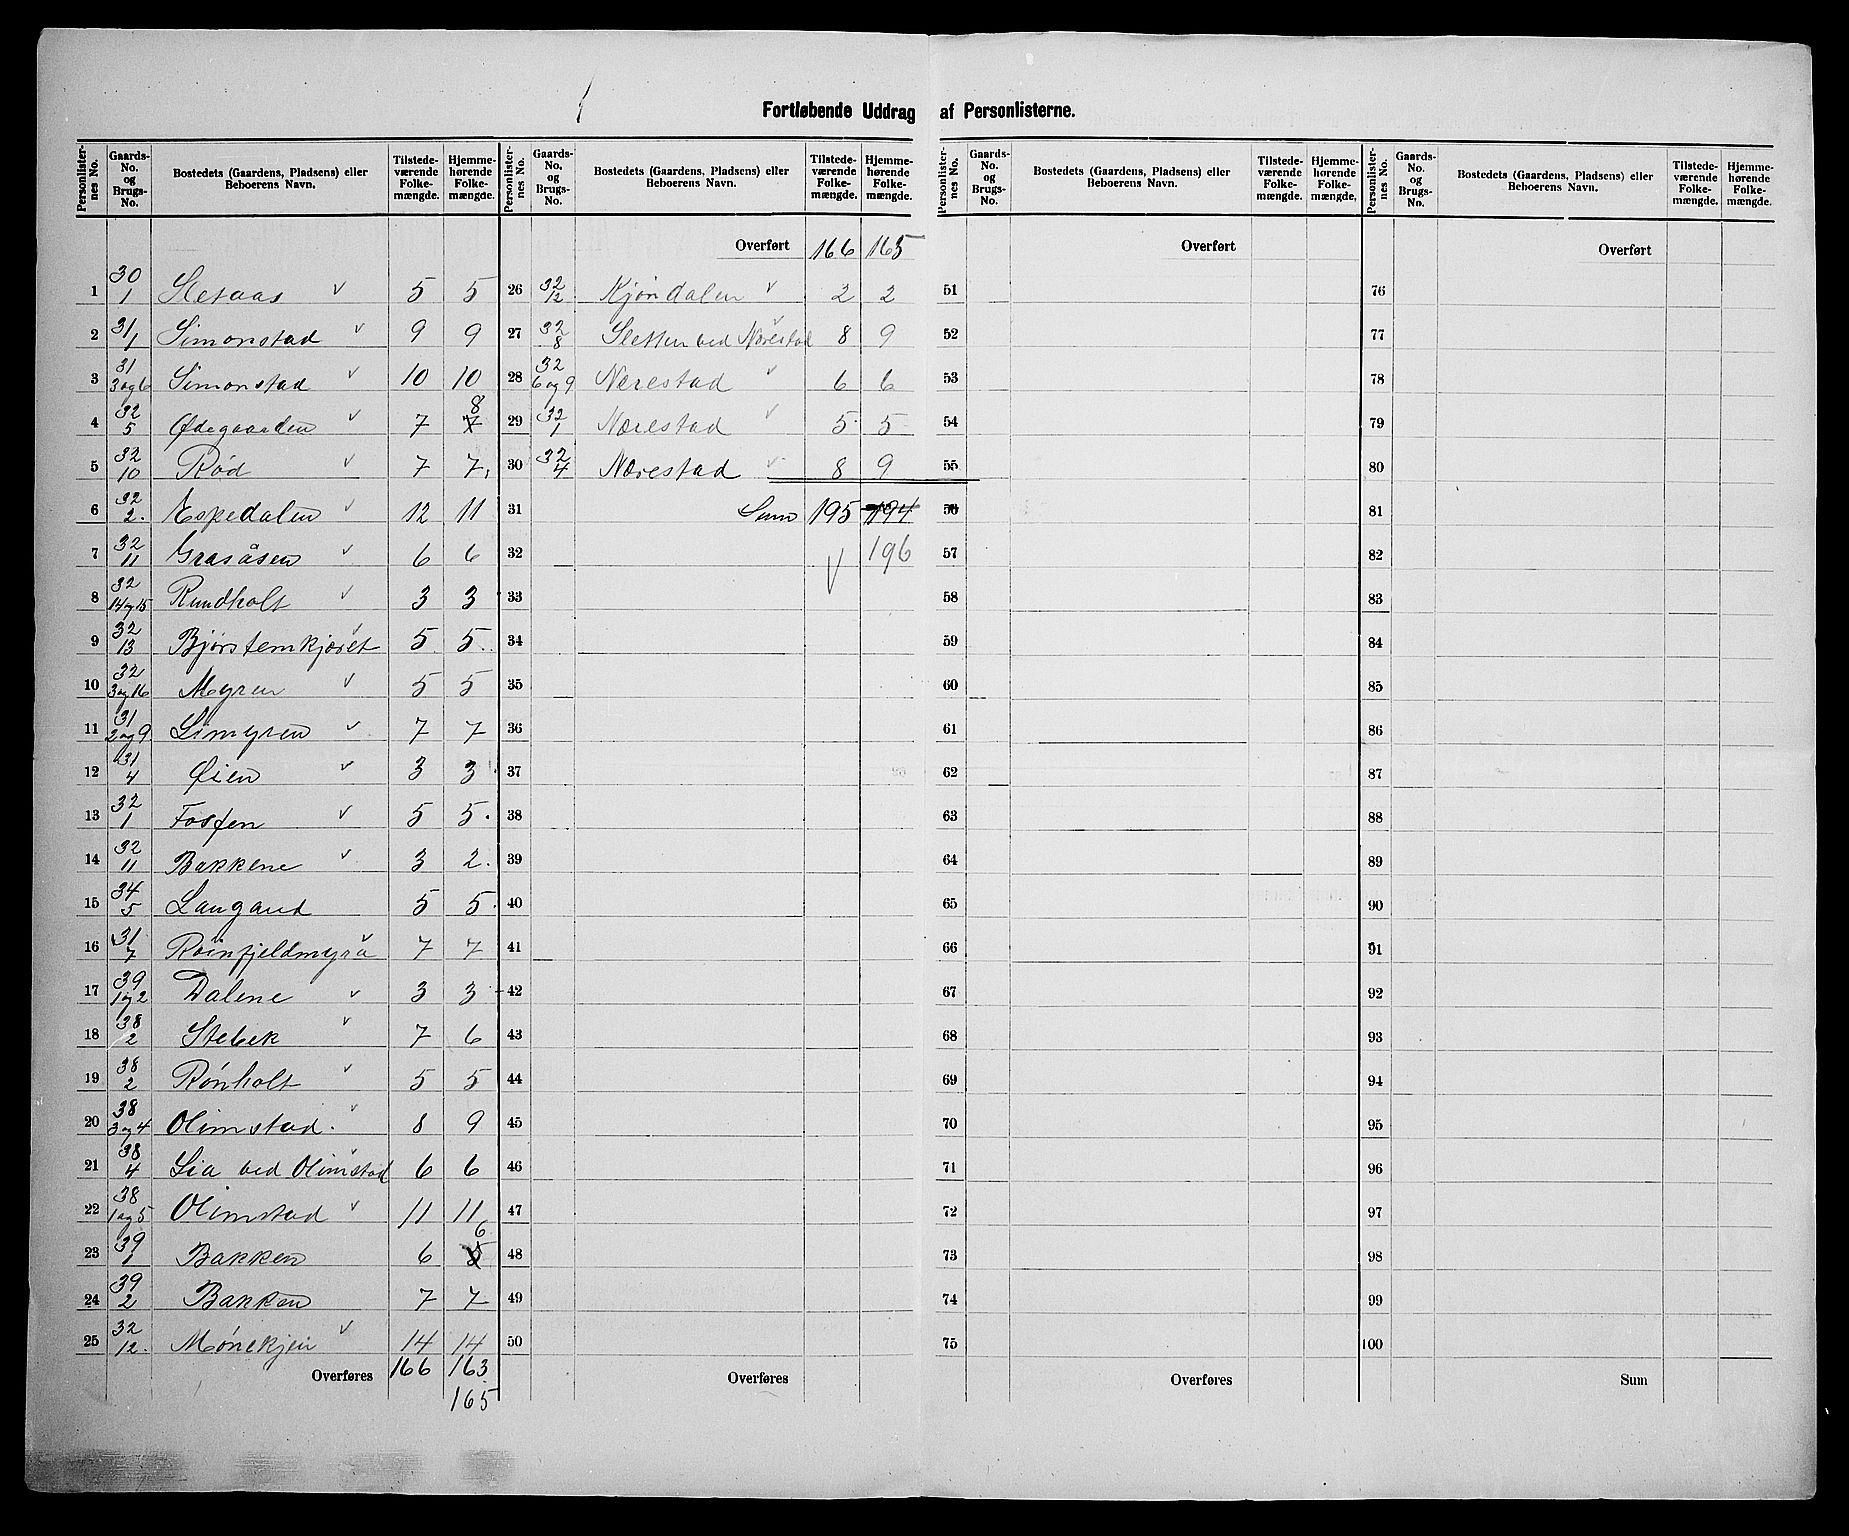 Fortløbende Uddrag af Personlisterne.
Personlisternes No. | Gaards-No. og Brugs-No. | Bostedets (Gaardens, Pladsens) eller Beboerens Navn. | Tilstedeværende Folkemængde. | Hjemmehørende Folkemængde.
1 | 30/1 | Sletaas v | 5 | 5
2 | 31/1 | Simonstad v | 9 | 9
3 | 31/3og6 | Simonstad v | 10 | 10
4 | 32/5 | Ødegaarden v | 7 | 7 8
5 | 32/10 | Rød v | 7 | 7
6 | 32/2. | Espedalen v | 12 | 11
7 | 32/11 | Grasåsen v | 6 | 6
8 | 32/14og15 | Rundholt v | 3 | 3
9 | 32/13 | Bjørstemkjæret v | 5 | 5
10 | 32/3og16 | Myren v | 5 | 5
11 | 31/2og9 | Limyren v | 7 | 7
12 | 31/4 | Øien v | 3 | 3
13 | 32/1 | Fosfen v | 5 | 5
14 | 32/11 | Bakkene v | 3 | 2
15 | 34/5 | Laugand | 5 | 5
16 | 31/7 | Roinfjeldmyra v | 7 | 7
17 | 39/1og2 | Dalene v | 3 | 3
18 | 38/2 | Stebek v | 7 | 6
19 | 38/2 | Rønholt v | 5 | 5
20 | 38/3og4 | Olimstad. v | 8 | 9
21 | 38/4 | Lia ved Olimstad v | 6 | 6
22 | 38/1og5 | Olimstad v | 11 | 11
23 | 39/1 | Bakken | 6 | 5 6
24 | 39/2 | Bakken | 7 | 7
25 | 32/12. | Mønekjen v | 14 | 14
Overføres | 166 | 163
165
Personlisternes No. | Gaards-No. og Brugs-No. | Bostedets (Gaardens, Pladsens) eller Beboerens Navn. | Tilstedeværende Folkemængde. | Hjemmehørende Folkemængde.
Overført | 166 | 165
26 | 32/12 | Kjøndalen v | 2 | 2
27 | 32/8 | Sletten ved Nærestad v | 8 | 9
28 | 32/6og9 | Nærestad v | 6 | 6
29 | 32/1 | Nærestad v | 5 | 5
30 | 32/4 | Nærestad v | 8 | 9
31 | Sum | 195 | 194
32 | v | 196
33
34
35
36
37
38
39
40
41
42
43
44
45
46
47
48
49
50
Overføres
Personlisternes No. | Gaards-No. og Brugs-No. | Bostedets (Gaardens, Pladsens) eller Beboerens Navn. | Tilstedeværende Folkemængde. | Hjemmehørende Folkemængde.
Overført
51
52
53
54
55
56
57
58
59
60
61
62
63
64
65
66
67
68
69
70
71
72
73
74
75
Overføres
Personlisternes No. | Gaards-No. og Brugs-No. | Bostedets (Gaardens, Pladsens) eller Beboerens Navn. | Tilstedeværende Folkemængde. | Hjemmehørende Folkemængde.
Overført
76
77
78
79
80
81
82
83
84
85
86
87
88
89
90
91
92
93
94
95
96
97
98
99
100
Sum